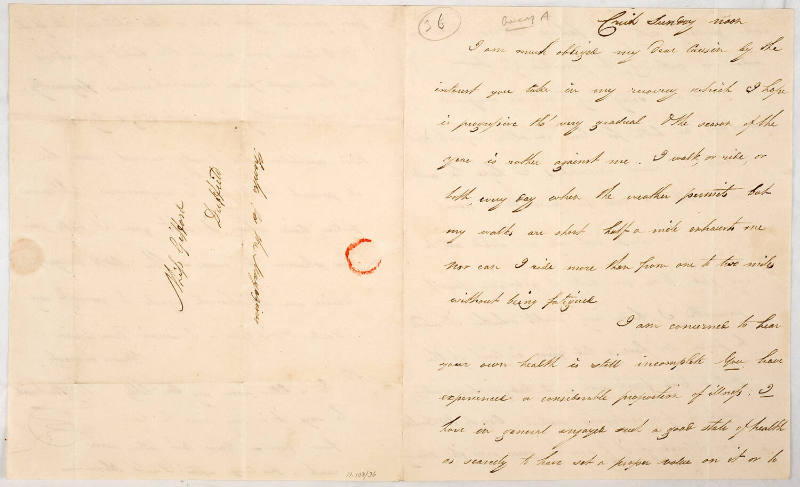 Miss Gifford
Duffield
Thanks for the Magazines
36
Query A
Crich Sunday noon
I am much obliged my Dear Cousin by the
interest you take in my recovery which I hope
is progressive tho' very gradual & the season of the
year is rather against me. I walk, or ride, or
both, every day when the weather permits but
my walks are short half a mile exhausts me
nor can I ride more than from one to two miles
without being fatigued
I am concerned to hear
your own health is still incomplete You have
experienced a considerable proportion of illness; I
have in general enjoyed such a good state of health
as scarcely to have set a proper value on it or to